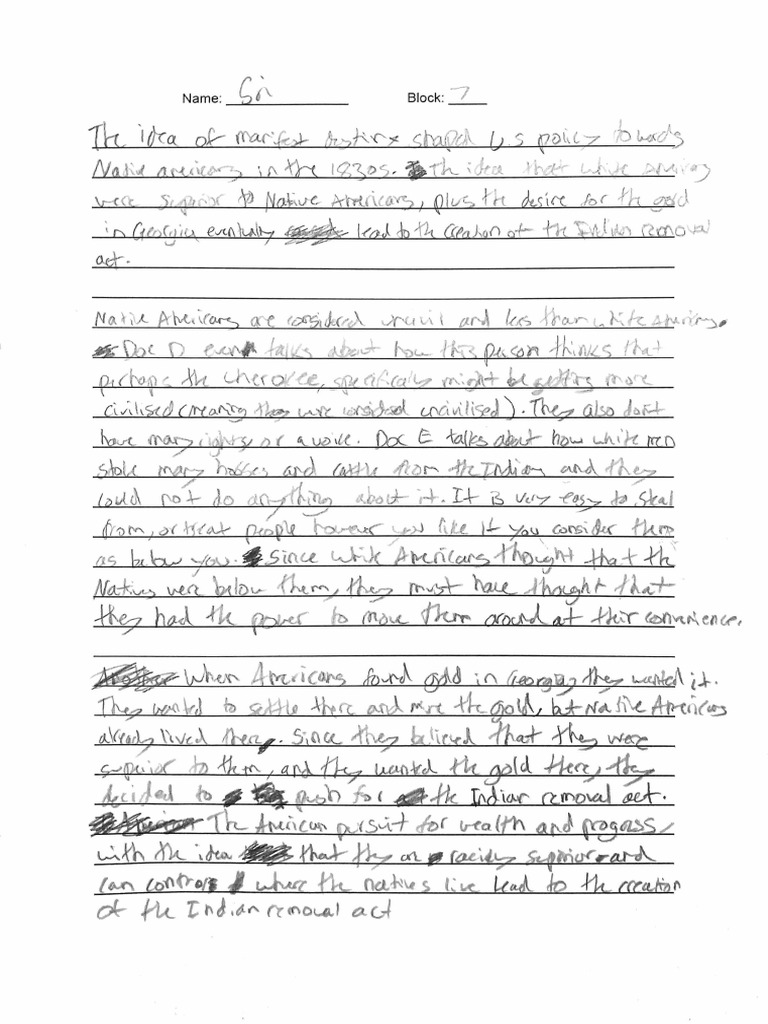 Name: Sri Block: 7
The idea of manifest destiny shaped U.S policy towards
Native americans in the 1830s. The idea that white americans
were superior to Native Americans, plus the desire for the gold
in Georgia eventually lead to the creation of the Indian removal
act.
Native Americans are considered uncivil and less than white Americans.
Doc D even talks about how this person thinks that
perhaps the cherokee, specifically might be getting more
civilised (meaning they were considered uncivilised). They also don't
have many rights or a voice. Doc E talks about how white men
stole many horses and cattle from the Indians and they
could not do anything about it. It is very easy to steal
from, or treat people however you like if you consider them
as below you. Since white Americans thought that the
Natives were below them, they must have thought that
they had the power to move them around at their convenience.
When Americans found gold in Georgia, they wanted it.
They wanted to settle there and mine the gold, but Native Americans
already lived there. Since they believed that they were
superior to them, and they wanted the gold there, they
decided to push for the Indian removal act.
The American pursuit for wealth and progress,
with the idea that they are racialy superior and
can control where the natives live lead to the creation
of the Indian removal act